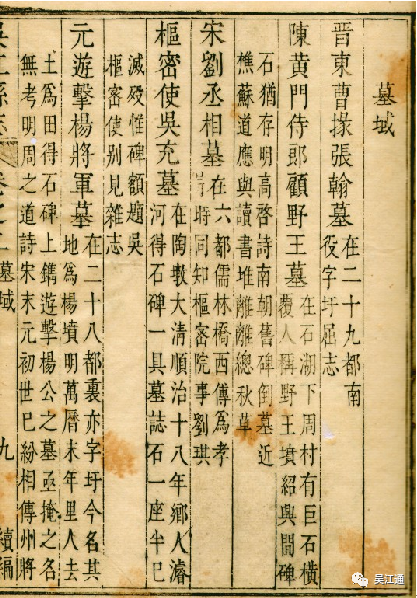 墓域
晋東曹掾張翰墓
在二十九都南
役字圩屈志
陳黄門侍郎顧野王墓
在石湖下周村有巨石橫
覆人稱野王墳紹興間碑
石猶存明高啓詩南朝舊碑倒墓近
樵蘇道應與讀書堆離離總秋草
宋劉丞相墓
在六都儒林橋西傳爲孝
時同知樞密院事劉珙
樞密使吳充墓
在陶墩大清順治十八年鄉人濬
河得石碑一具墓誌石一座半巳
滅歿惟碑額題吳
樞密使别見雜志
元遊擊楊將軍墓
在二十八都裏亦字圩今名其
地爲楊墳明萬曆末年里人去
土爲田得石碑上鐫遊擊楊公之墓亟掩之名
無考明周之道詩宋末元初世巳紛相傳州將
墓域
九
續編
吴江通